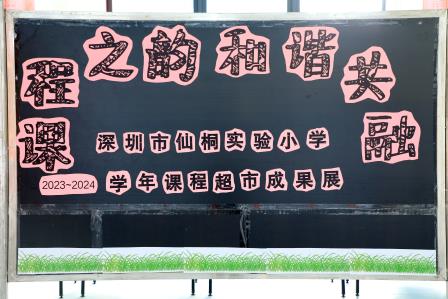 课程之韵和谐共融
深圳市仙桐实验小学
2023~2024 学年课程超市成果展